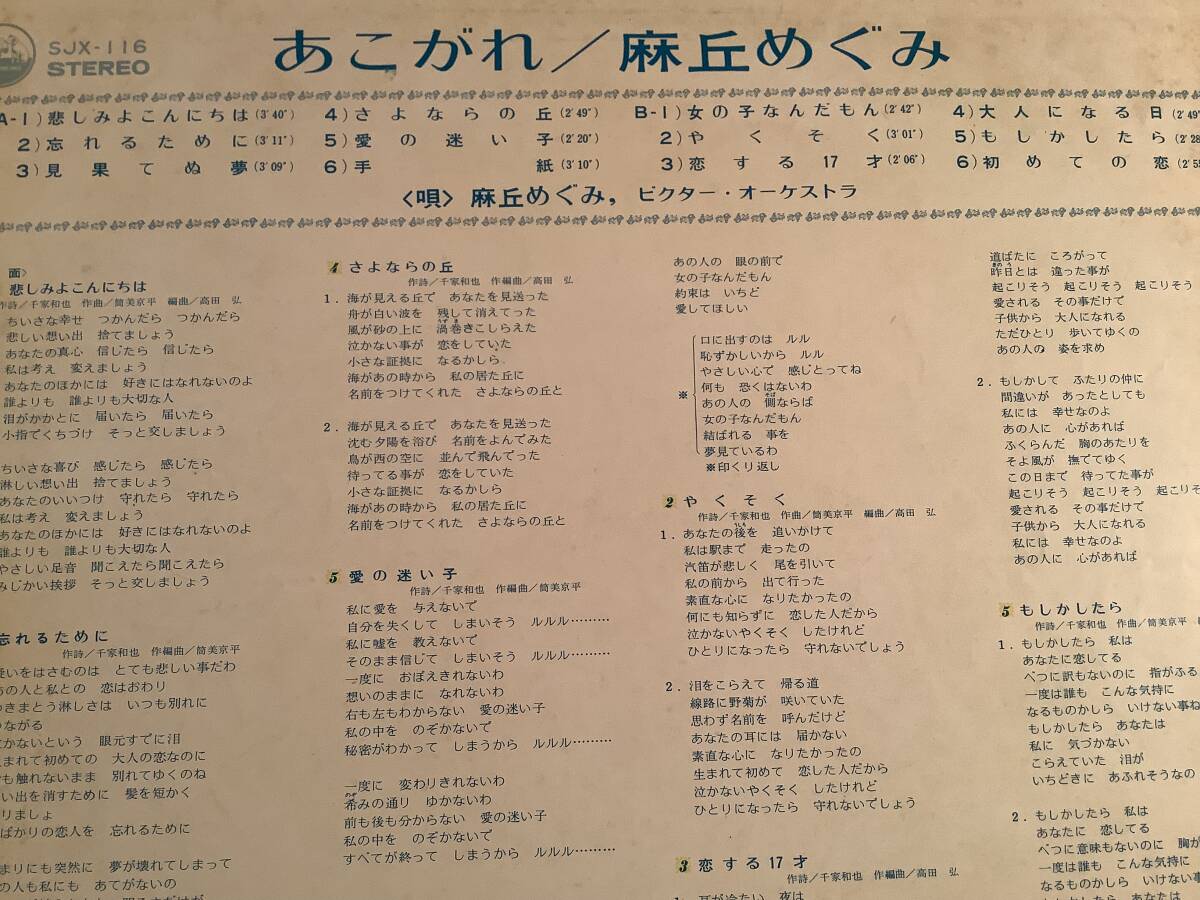 SJX-116
STEREO
あこがれ／麻丘めぐみ
A-1）悲しみよこんにちは(3′40″)
2）忘れるために(3′11″)
3）見果てぬ夢(3′09″)
4）さよならの丘(2′49″)
5）愛の迷い子(2′20″)
6）手紙(3′10″)
B-1）女の子なんだもん(2′42″)
2）やくそく(3′01″)
3）恋する17才(2′06″)
4）大人になる日(2′49″
5）もしかしたら(2′28
6）初めての恋(2′5
〈唄〉麻丘めぐみ，ビクター・オーケストラ
面〉
悲しみよこんにちは
作詩／千家和也　作曲／筒美京平　編曲／高田　弘
ちいさな幸せ　つかんだら　つかんだら
悲しい想い出　捨てましょう
あなたの真心　信じたら　信じたら
私は考え　変えましょう
あなたのほかには　好きにはなれないのよ
誰よりも　誰よりも大切な人
泪がかかとに　届いたら　届いたら
小指でくちづけ　そっと交しましょう
ちいさな喜び　感じたら　感じたら
淋しい想い出　捨てましょう
あなたのいいつけ　守れたら　守れたら
私は考え　変えましょう
あなたのほかには　好きにはなれないのよ
誰よりも　誰よりも大切な人
やさしい足音　聞こえたら聞こえたら
みじかい挨拶　そっと交しましょう
忘れるために
作詩／千家和也　作編曲／筒美京平
いをはさむのは　とても悲しい事だわ
の人と私との　恋はおわり
やきまとう淋しさは　いつも別れに
つながる
かないという　眼元すでに泪
まれて初めての　大人の恋なのに
も触れないまま　別れてゆくのね
い出を消すために　髪を短かく
りましょ
ばかりの恋人を　忘れるために
まりにも突然に　夢が壊れてしまって
の人も私にも　あてがないの
4 さよならの丘
作詩／千家和也　作編曲／高田　弘
1．海が見える丘で　あなたを見送った
舟が白い波を　残して消えてった
風が砂の上に　渦巻きこしらえた
泣かない事が　恋をしていた
小さな証拠に　なるかしら
海があの時から　私の居た丘に
名前をつけてくれた　さよならの丘と
2．海が見える丘で　あなたを見送った
沈む夕陽を浴び　名前をよんでみた
鳥が西の空に　並んで飛んでった
待ってる事が　恋をしていた
小さな証拠に　なるかしら
海があの時から　私の居た丘に
名前をつけてくれた　さよならの丘と
5 愛の迷い子
作詩／千家和也　作編曲／筒美京平
私に愛を　与えないで
自分を失くして　しまいそう　ルルル………
私に嘘を　教えないで
そのまま信じて　しまいそう　ルルル………
一度に　おぼえきれないわ
想いのままに　なれないわ
右も左もわからない　愛の迷い子
私の中を　のぞかないで
秘密がわかって　しまうから　ルルル………
一度に　変わりきれないわ
希みの通り　ゆかないわ
前も後も分からない　愛の迷い子
私の中を　のぞかないで
すべてが終って　しまうから　ルルル………
あの人の　眼の前で
女の子なんだもん
約束は　いちど
愛してほしい
口に出すのは　ルル
恥ずかしいから　ルル
やさしい心で　感じとってね
何も　恐くはないわ
※ あの人の　側ならば
女の子なんだもん
結ばれる　事を
夢見ているわ
※印くり返し
2 やくそく
作詩／千家和也　作曲／筒美京平　編曲／高田　弘
1．あなたの後を　追いかけて
私は駅まで　走ったの
汽笛が悲しく　尾を引いて
私の前から　出て行った
素直な心に　なりたかったの
何にも知らずに　恋した人だから
泣かないやくそく　したけれど
ひとりになったら　守れないでしょう
2．泪をこらえて　帰る道
線路に野菊が　咲いていた
思わず名前を　呼んだけど
あなたの耳には　届かない
素直な心に　なりたかったの
生まれて初めて　恋した人だから
泣かないやくそく　したけれど
ひとりになったら　守れないでしょう
3 恋する17才
作詩／千家和也　作編曲／高田　弘
1．耳が冷たい　夜は
道ばたに　ころがって
昨日とは　違った事が
起こりそう　起こりそう　起こりそう
愛される　その事だけで
子供から　大人になれる
ただひとり　歩いてゆくの
あの人の　姿を求め
2．もしかして　ふたりの仲に
間違いが　あったとしても
私には　幸せなのよ
あの人に　心があれば
ふくらんだ　胸のあたりを
そよ風が　撫でてゆく
この日まで　待ってた事が
起こりそう　起こりそう　起こりそ
愛される　その事だけで
子供から　大人になれる
私には　幸せなのよ
あの人に　心があれば
5 もしかしたら
作詩／千家和也　作曲／筒美京平
1．もしかしたら　私は
あなたに恋してる
べつに訳もないのに　指がふる
一度は誰も　こんな気持に
なるものかしら　いけない事ね
もしかしたら　あなたは
私に　気づかない
こらえていた　泪が
いちどきに　あふれそうなの
2．もしかしたら　私は
あなたに　恋してる
べつに意味もないのに　胸が
一度は誰も　こんな気持に
なるものかしら　いけない事